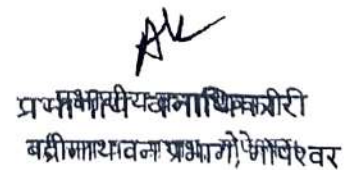 प्रभागीय वनाधिकारी
बद्रीनाथ वन प्रभाग, गोपेश्वर